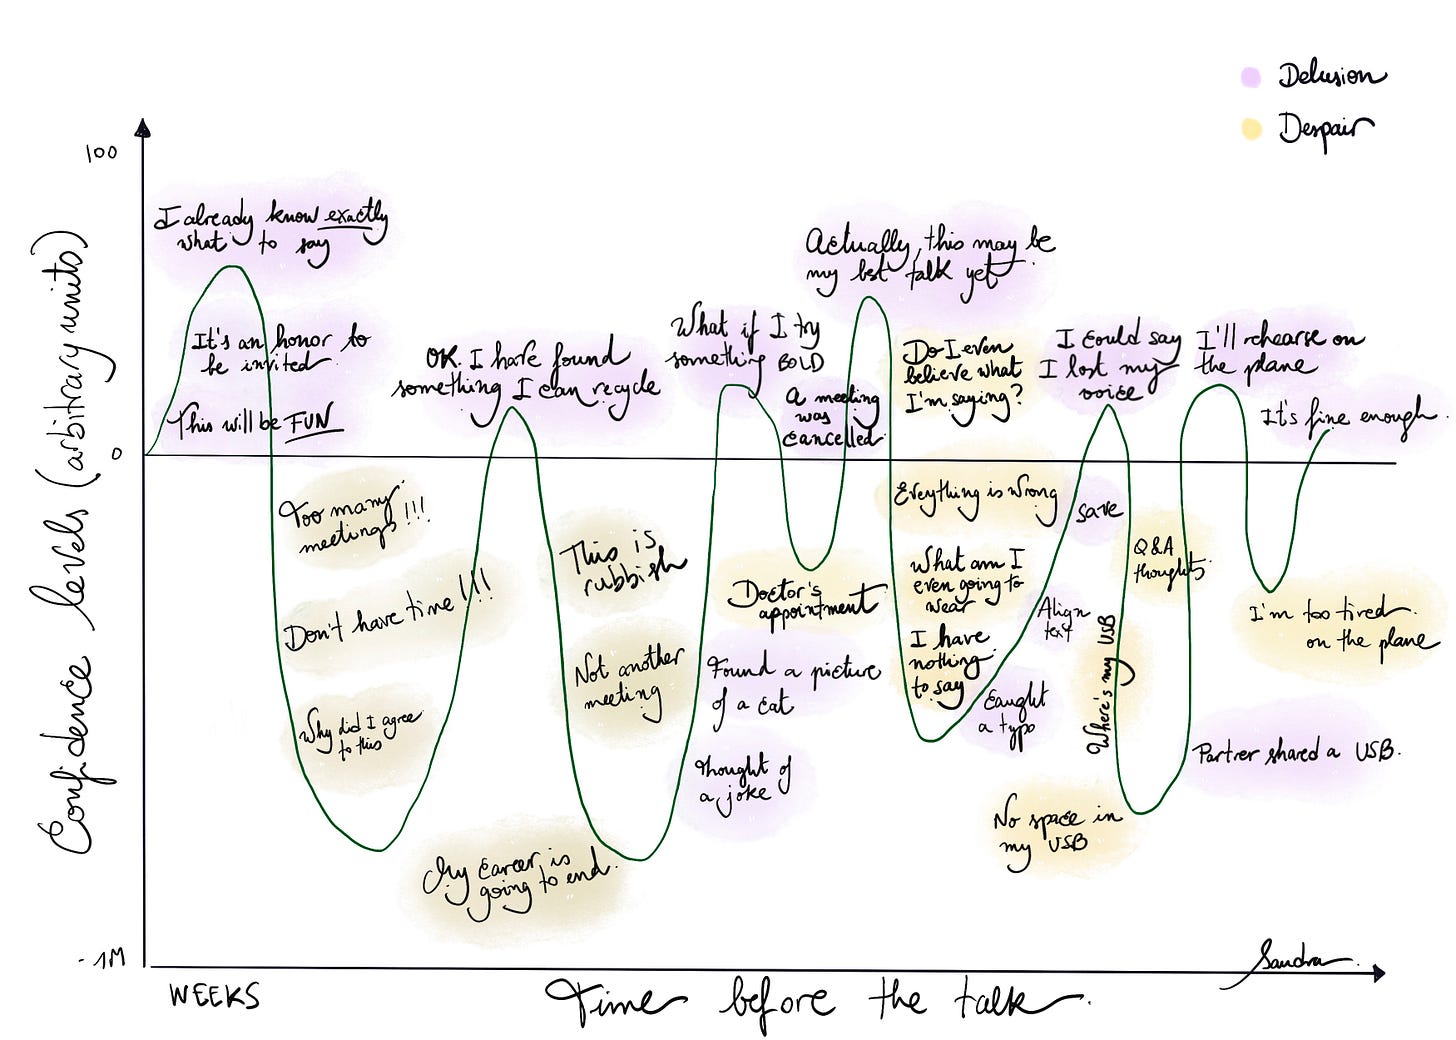 Delusion
Despair
100
0
-1M
Confidence levels (arbitrary units)
I already know exactly
what to say
It's an honor to
be invited
This will be FUN
Too many
meetings !!!
Don't have time !!!
Why did I agree
to this
My career is
going to end.
OK. I have found
something I can recycle
This is
rubbish
Not another
meeting
What if I try
something BOLD
Found a picture
of a cat
Thought of
a joke
A meeting
was
cancelled
Doctor's
appointment
Actually, this may be
my best talk yet
Do I even
believe what
I'm saying?
Eveything is wrong
What am I
even going to
wear
I have
nothing
to say
Caught
a typo
Align
text
save
I could say
I lost my
voice
Q&A
thoughts
Where's my USB
No space in
my USB
Partner shared a USB.
I'll rehearse on
the plane
I'm too tired
on the plane
It's fine enough.
Sandra
WEEKS
Time before the talk.